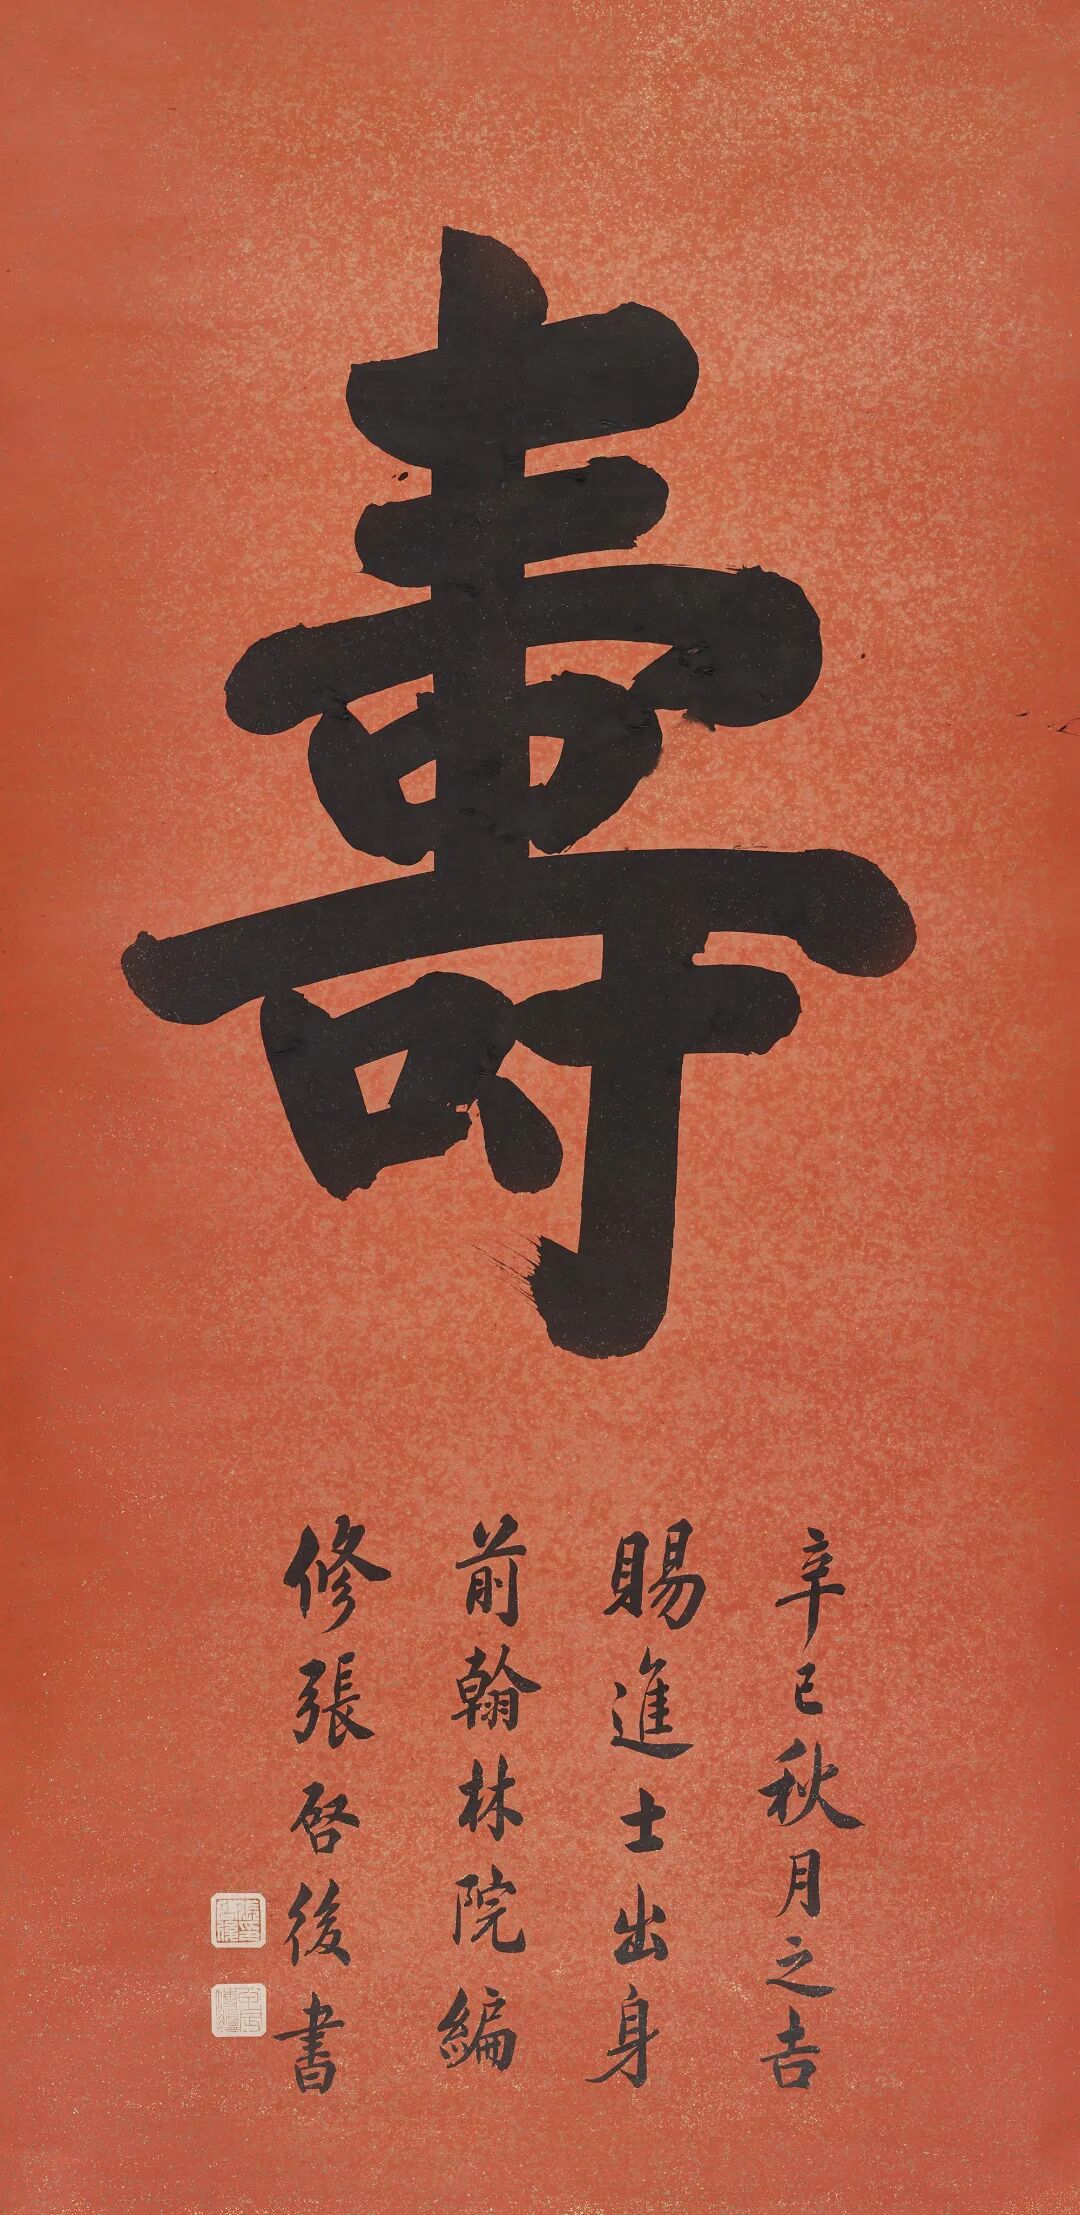 壽
辛巳秋月之吉
賜進士出身
前翰林院編
修張啓後書